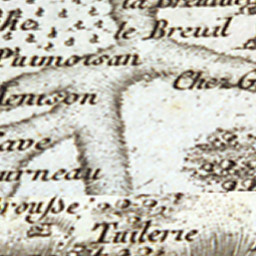 le Breuil
Puimoisan
Chez G
enison
ave
urneau
rousse
Tuilerie